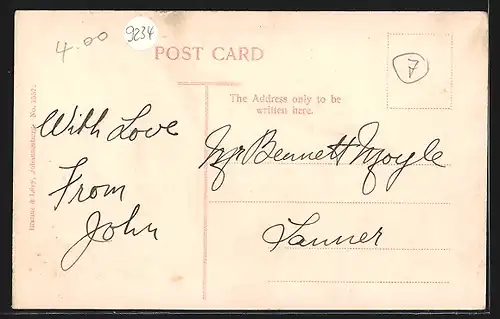 4.00
9234
POST CARD
7
The Address only to be
written here.
With Love
From
John
Mr Bennett Moyle
Lanner
Braune & Levy, Johannesburg. No. 1557.